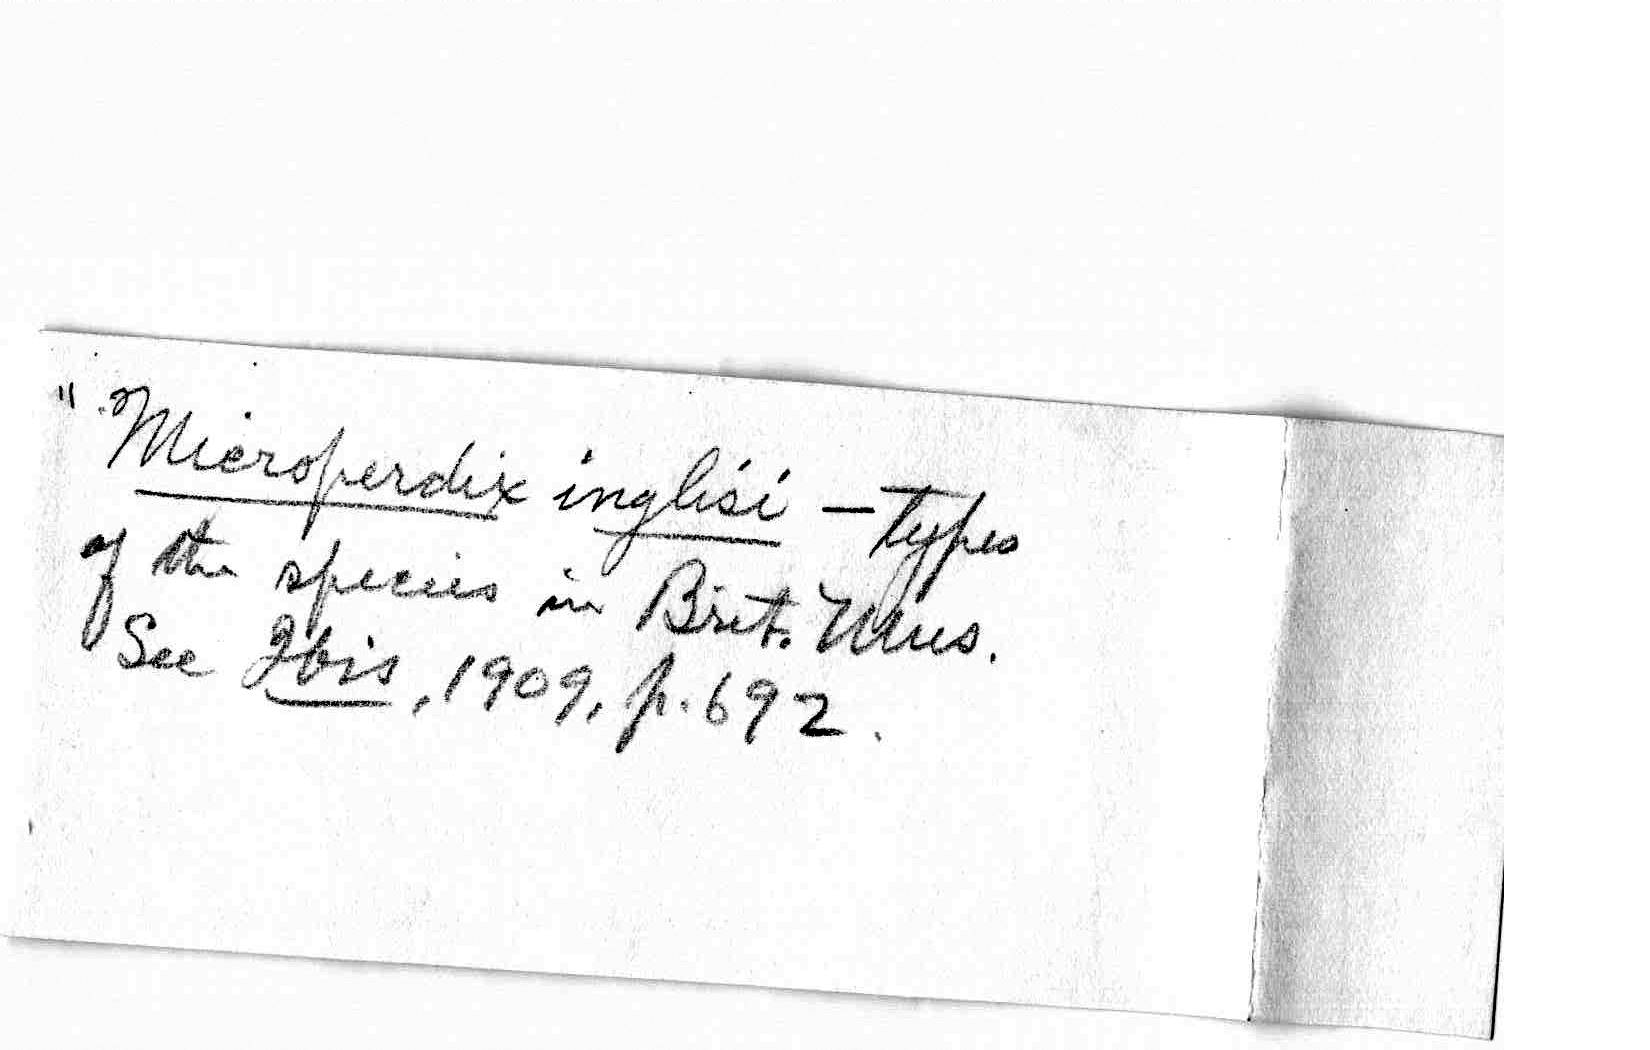 " Microperdix inglisi — Types
of the species in Brit. Mus.
See Ibis, 1909, p. 692.